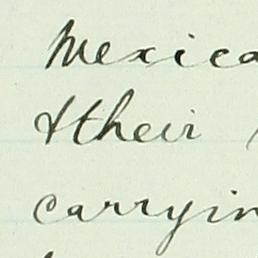 Mexica
& their
carryin